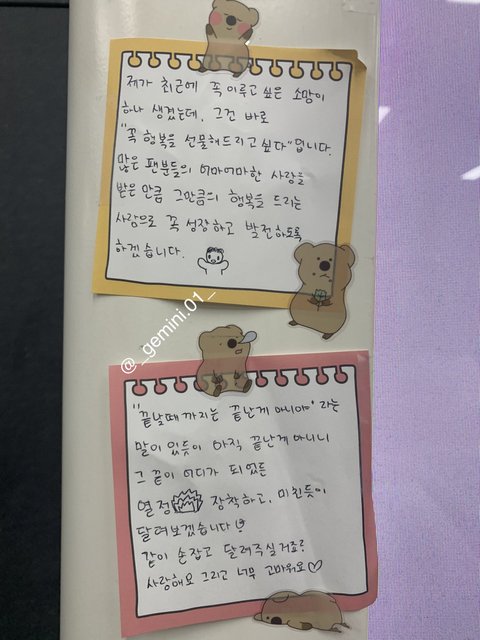 제가 최근에 꼭 이루고 싶은 소망이
하나 생겼는데, 그건 바로
"꼭 행복을 선물해드리고 싶다" 입니다.
많은 팬분들의 어마어마한 사랑을
받은 만큼 그만큼의 행복을 드리는
사람으로 꼭 성장하고 발전하도록
하겠습니다.
@_gemini.01_
"끝날때 까지는 끝난게 아니야" 라는
말이 있듯이 아직 끝난게 아니니
그 끝이 어디가 되었든
열정 장착하고, 미친듯이
달려보겠습니다!
같이 손잡고 달려주실거죠?
사랑해요 그리고 너무 고마워요♡